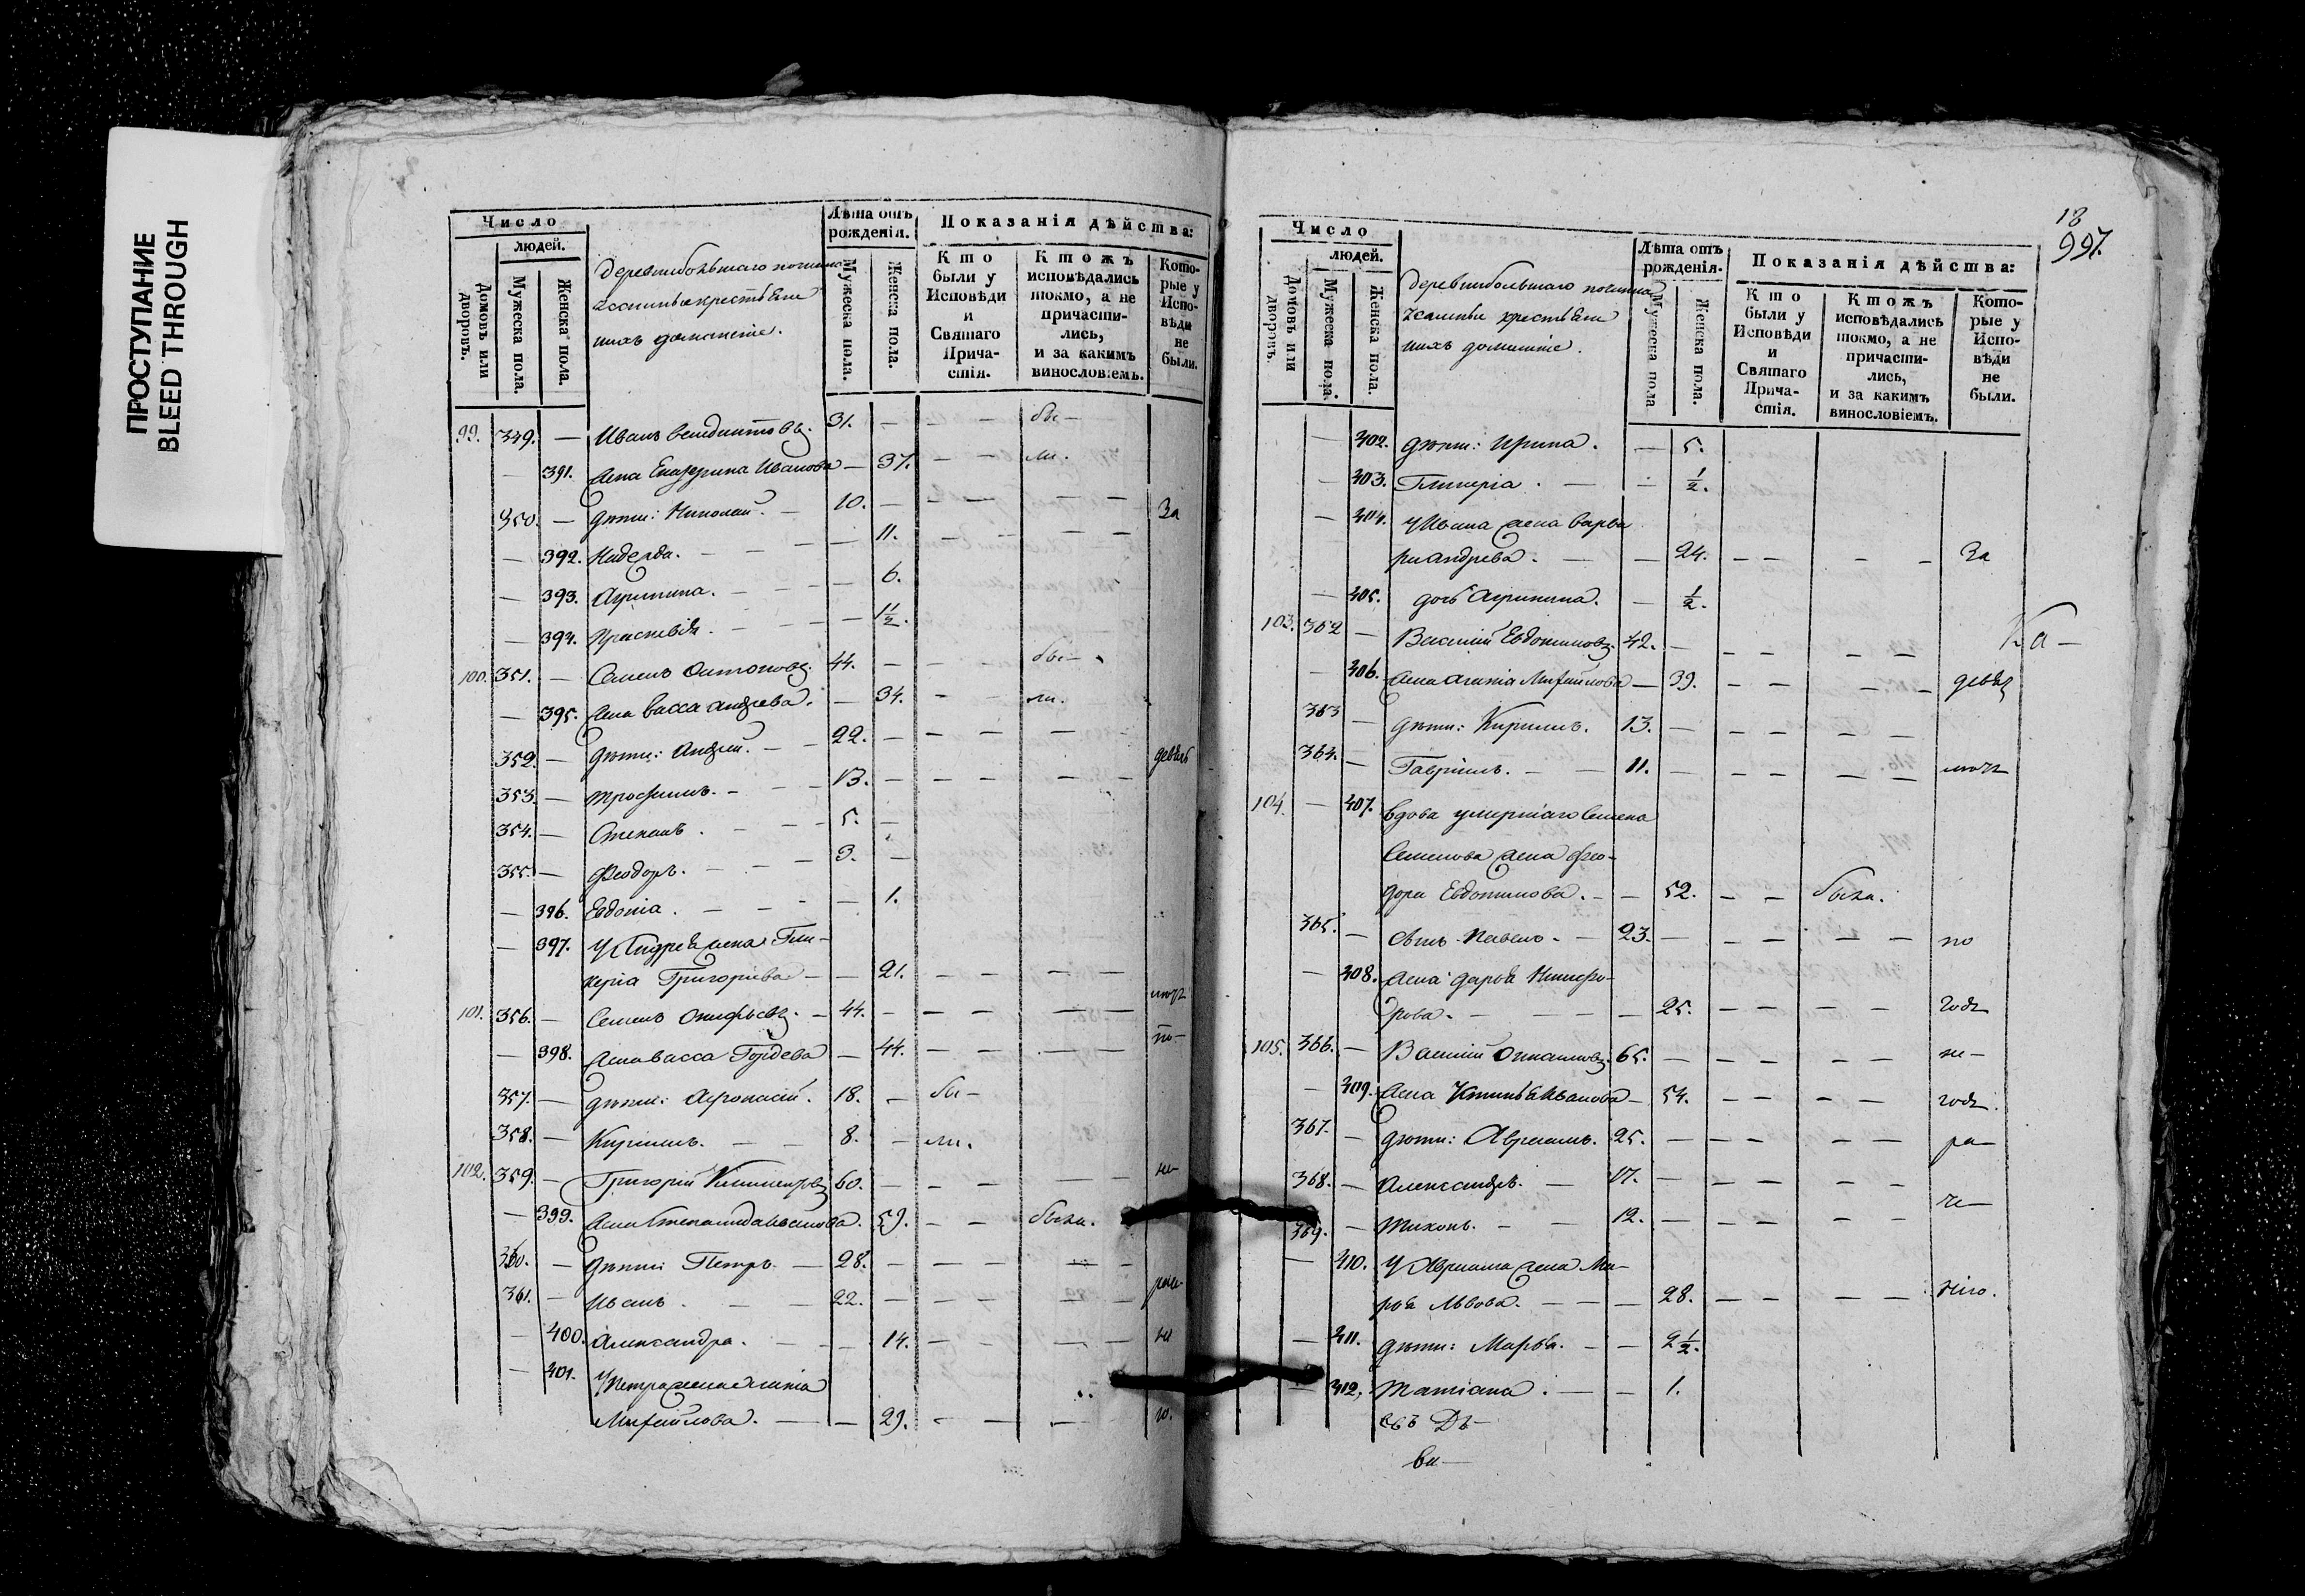 ПРОСТУПАНИЕ
BLEED THROUGH
Число
людей.
Домовъ или дворовъ.
Мужеска пола.
Женска пола.
Деревни большаго починка
крестьяне
ихъ домашніе.
Лѣта отъ рожденія.
Мужеска пола.
Женска пола.
Показанія дѣйства:
Кто были у Исповѣди и Святаго Причастія.
Ктожъ исповѣдались токмо, а не причастились, и за какимъ винословіемъ.
Которые у Исповѣди не были.
99. 349. — Иванъ Венедиктовъ. 31. — — — бы —
— 391. жена Екатерина Иванова — 37. — — ли.
350. — дѣти: Николай. — 10. — — — — — За
— 392. Надежда. — — — 11. — — — —
— 393. Агрипина. — — — 6.
— 394. Праскевія. — — — 1 1/2.
100. 351. — Семенъ Антоновъ. 44. — — — бы —
— 395. жена Васса Андреева. — 34. — — ли.
352. — дѣти: Андрей. — — 22. — — — — девять
353. — Трофимъ. — — — 13. — — — — —
354. — Степанъ. — — — 5. —
355. — Феодоръ. — — — 3. —
— 396. Евдокія. — — — — 1.
— 397. У Андрея жена Гли-
керія Григорьева — — 21. — — — —
101. 356. — Семенъ — 44. — — — — —
— 398. жена Васса Гордеева — 44. — — — — по-
357. — дѣти: Афонасій. 18. — бы —
358. — Кирилъ. — — 8. — ли.
102. 359. — Григорій 60. — — — — — не-
— 399. жена Степанида Иванова. 59. — — была.
360. — дѣти: Петръ — 28. — — — — —
361. — Иванъ. — — 22. — — — — —
— 400. Александра. — — — 14. — — — не
— 401. У Петра жена
Михайлова. — — 29. — — —
18
997.
Число
людей.
Домовъ или дворовъ.
Мужеска пола.
Женска пола.
Деревни большаго починка
крестьяне
ихъ домашніе.
Лѣта отъ рожденія.
Мужеска пола
Женска пола.
Показанія дѣйства:
Кто были у Исповѣди и Святаго Причастія.
Ктожъ исповѣдались токмо, а не причастились, и за какимъ винословіемъ.
Которые у Исповѣди не были.
— 402. дѣти: Ирина. — 5.
— 403. Гликерія. — — 1/2.
— 404. У Ивана жена Варва
ра Андреева. — — 24. — — — — За
— 405. дочь Агрипина. — 1/2.
103. 362 — Василій Евдокимовъ. 42. — — — — —
Ка —
— 406. жена Михайлова — 39. — — — — девять
363 — дѣти: Кирилъ. 13. — — — — —
364. — Гавріилъ. — — 11. — — — — —
104. — 407. Вдова умершаго Семена
Семенова жена Фео-
дора Евдокимова. — — 52. — — была.
365. — сынъ Павелъ. — 23. — — — — — по
— 408. жена Дарья Никифо-
рова. — — — — 25. — — — — годъ
105. 366. — Василій 65. — — — — — не —
— 409. жена Устинья Иванова — 54. — — — — годъ.
367. — дѣти: Авраамъ. 25. — — — — — ра —
368. — Александръ. — 17. — — — — —
369. — Тихонъ. — — 12. — — — — —
— 410. У Авраама жена Ма-
рья Львова. — — — 28. — — — —
— 411. дѣти: Марья. — — 2 1/2.
— 412. Татіана. — — 1.